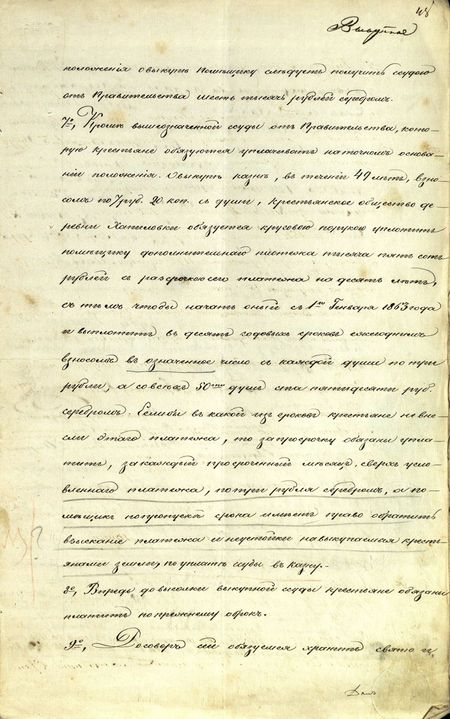 48
Выкупное
положенія о выкупѣ помѣщику слѣдуетъ получить ссудою
отъ Правительства шесть тысячь рублей серебромъ.
7е, Кромѣ вышеозначенной ссуды отъ Правительства, кото-
рую крестьяне обязуются уплачивать на точномъ основа-
ніи положенія о выкупѣ казнѣ, въ теченіи 49 лѣтъ, взно-
сомъ по 7 руб. 20 коп. съ души, крестьянское общество де-
ревни Хатиловки обязуется круговою порукою уплатить
помѣщику дополнительнаго платежа тысяча пять сотъ
рублей съ разсрочкою сего платежа на десять лѣтъ,
съ тѣмъ чтобы начать оный съ 1го Генваря 1863 года
и выплотить въ десять годовыхъ сроковъ ежегоднымъ
взносомъ въ означенное число съ каждой души по три
рубли, а со всѣхъ 50ти душъ ста пятидесяти руб.
серебромъ. Если бы въ какой изъ сроковъ крестьяне не вне-
сли этаго платежа, то за просрочку обязаны упла-
тить, за каждый просроченный мѣсяцъ, сверхъ усло-
вленнаго платежа, по три рубля серебромъ, а по-
мѣщикъ по пропускѣ срока имѣетъ право обратить
взысканіе платежа и неустойки на выкупаемыя кресть-
янами земли, по уплатѣ суды въ казну.
8е, Впредь до высылки выкупной ссуды крестьяне обязаны
платить по прежнему оброкъ.
9е, Договоръ сей обязуемся хранить свято и